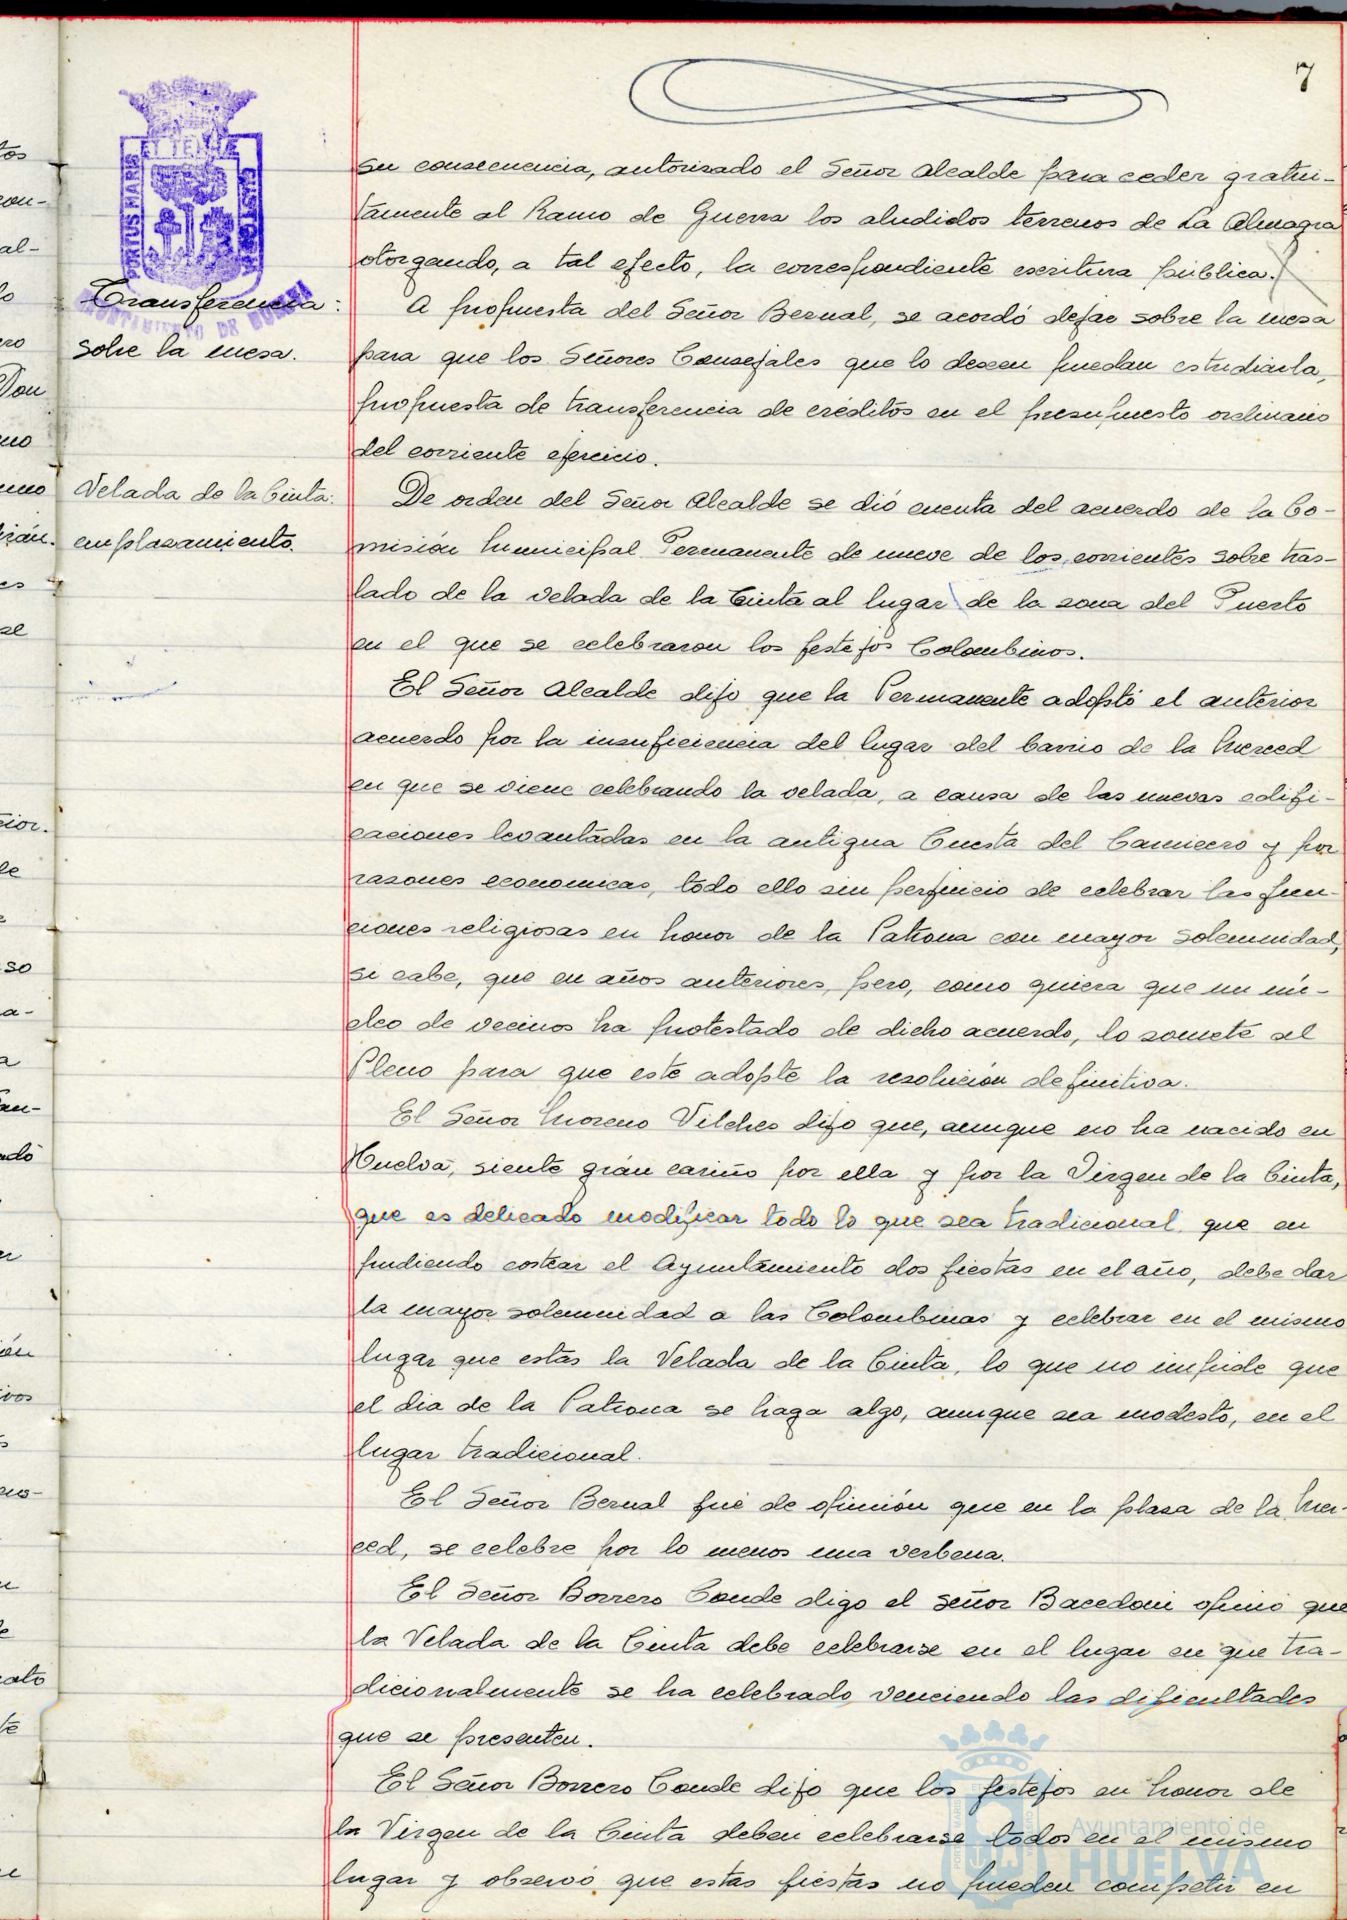 7
su consecuencia, autorizado el Señor Alcalde para ceder gratui-
tamente al Ramo de Guerra los aludidos terrenos de La Almagra
otorgando, a tal efecto, la correspondiente escritura pública.
Transferencia:
sobre la mesa.
A propuesta del Señor Bernal, se acordó dejar sobre la mesa
para que los Señores Consejales que lo deseen puedan estudiarla,
propuesta de transferencia de créditos en el presupuesto ordinario
del corriente ejercicio.
Velada de la Cinta:
emplazamiento.
De orden del Señor Alcalde se dió cuenta del acuerdo de la Co-
misión Municipal Permanente de nueve de los corrientes sobre tras-
lado de la velada de la Cinta al lugar de la zona del Puerto
en el que se celebraron los festejos Colombinos.
El Señor Alcalde dijo que la Permanente adoptó el anterior
acuerdo por la insuficiencia del lugar del barrio de la Merced
en que se viene celebrando la velada, a causa de las nuevas edifi-
caciones levantadas en la antigua Cuesta del Carnicero y por
razones economicas, todo ello sin perjuicio de celebrar las fun-
ciones religiosas en honor de la Patrona con mayor solemnidad,
si cabe, que en años anteriores, pero, como quiera que un nú-
cleo de vecinos ha protestado de dicho acuerdo, lo somete al
Pleno para que este adopte la resolución definitiva.
El Señor Moreno Vilches dijo que, aunque no ha nacido en
Huelva, siente grán cariño por ella y por la Virgen de la Cinta,
que es delicado modificar todo lo que sea tradicional, que en
pudiendo costear el Ayuntamiento dos fiestas en el año, debe dar
la mayor solemnidad a las Colombinas y celebrar en el mismo
lugar que estas la Velada de la Cinta, lo que no impide que
el dia de la Patrona se haga algo, aunque sea modesto, en el
lugar tradicional.
El Señor Bernal fué de opinión que en la plaza de la Mer-
ced, se celebre por lo menos una verbena.
El Señor Borrero Conde digo el señor Bacedoni opinó que
la Velada de la Cinta debe celebrarse en el lugar en que tra-
dicionalmente se ha celebrado venciendo las dificultades
que se presenten.
El Señor Borrero Conde dijo que los festejos en honor de
la Virgen de la Cinta deben celebrarse todos en el mismo
lugar y observó que estas fiestas no pueden competir en
PORTUS MARIS ET TERRAE CUSTODIA
AYUNTAMIENTO DE HUELVA
Ayuntamiento de
HUELVA